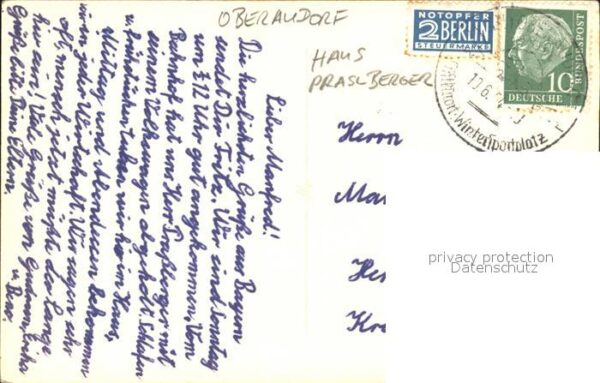 OBERAUDORF
HAUS
PRASLBERGER
NOTOPFER
2 BERLIN
STEUERMARKE
10
DEUTSCHE
BUNDESPOST
10.6.
Wintersportplatz
Lieber Manfred!
Die herzlichsten Grüße aus Bayern
sendet Dir Fritz. Wir sind Sonntag
um ½12 Uhr gut angekommen. Vom
Bahnhof hat uns Herr Praßlberger mit
seinem Volkswagen abgeholt. Schlafen
u. frühstücken tuhen wir hier im Haus,
Mittag und Abendessen bekommen
wir in jeder Wirtschaft. Wir sagen sehr
oft, mensch jetzt müßte der Lange
hier sein! Viele Grüße von Gudrun, Erika
u
Grüße bitte Deine Eltern.
Herrn
Ma
He
Kr
privacy protection
Datenschutz